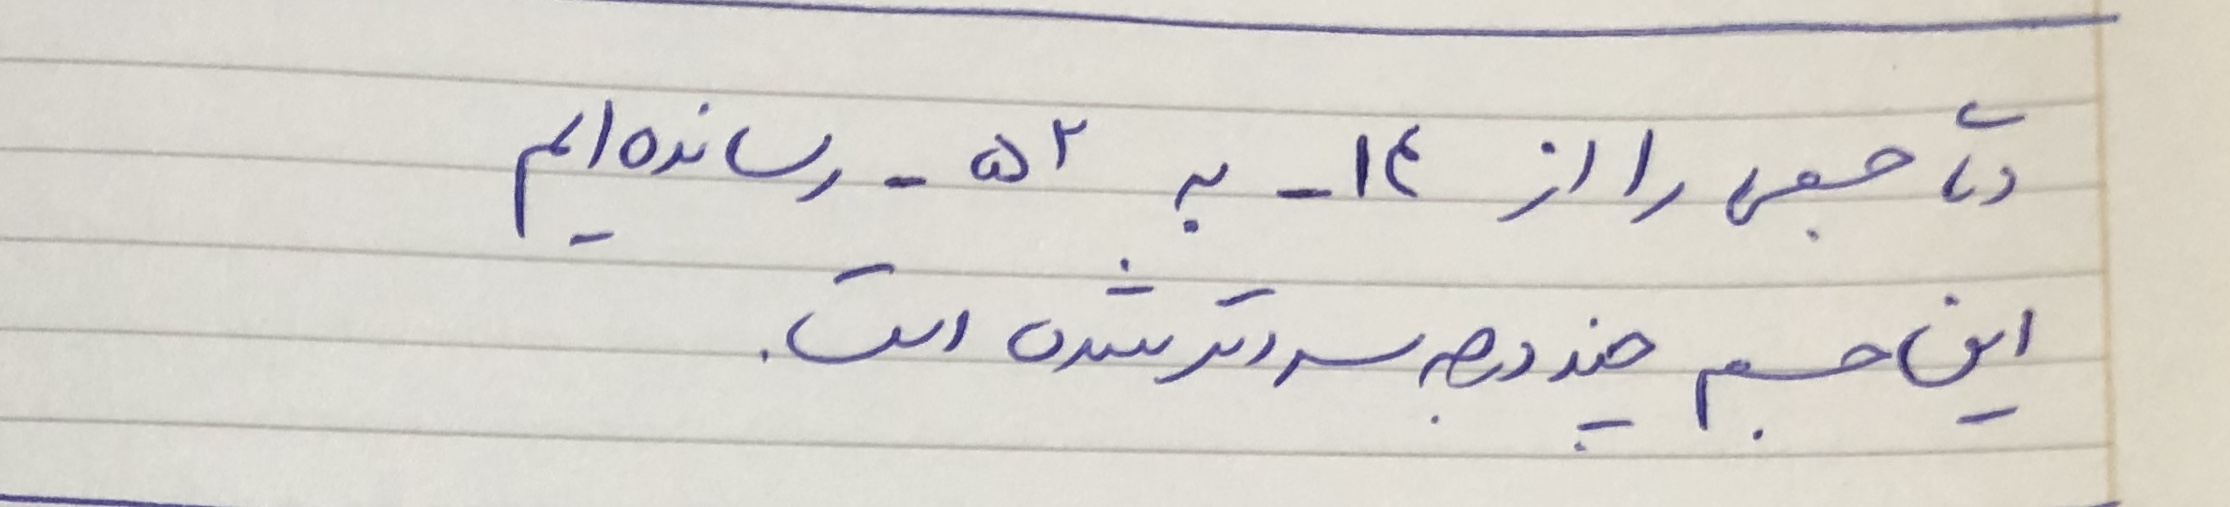 دمای جسمی را از ۱۴- به ۵۲- رسانده ایم
این جسم چند درجه سردتر شده است.